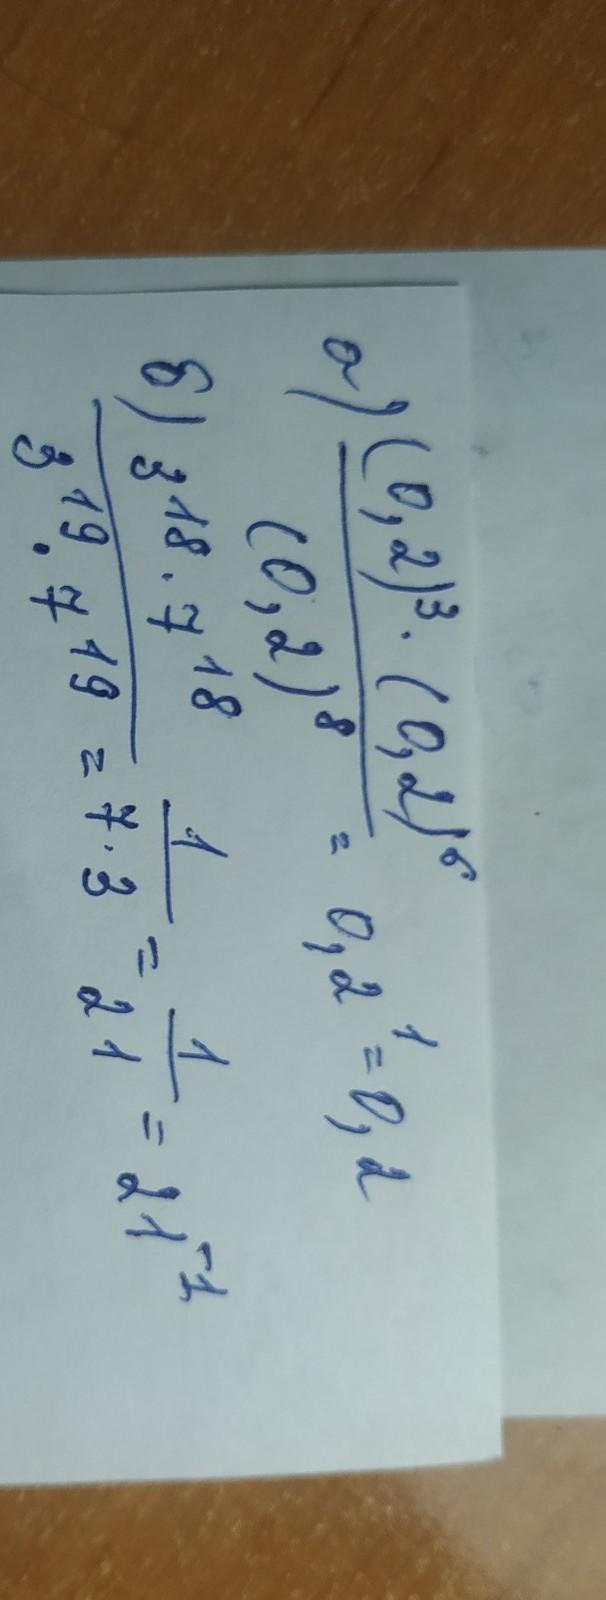 а) (0,2)³ · (0,2)⁶
(0,2)⁸ = 0,2¹ = 0,2
б) 3¹⁸ · 7¹⁸ 1 1
3¹⁹ · 7¹⁹ = 7·3 = 21 = 21⁻¹